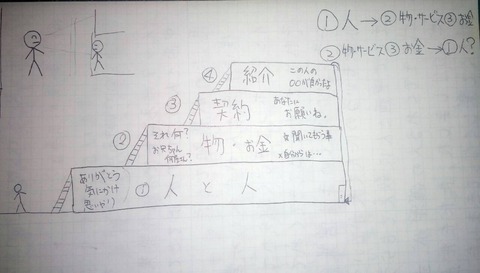 ①人→②物・サービス③お金
②物・サービス③お金→①人?
④
紹介
この人の
○○が良かったよ
③
契約
あなたに
お願いね。
②
それ、何?
お兄ちゃん
何屋さん?
物・お金
を聞いてもらう事
×自分からは…
ありがとう
気にかけ
思いやり
①
人と人